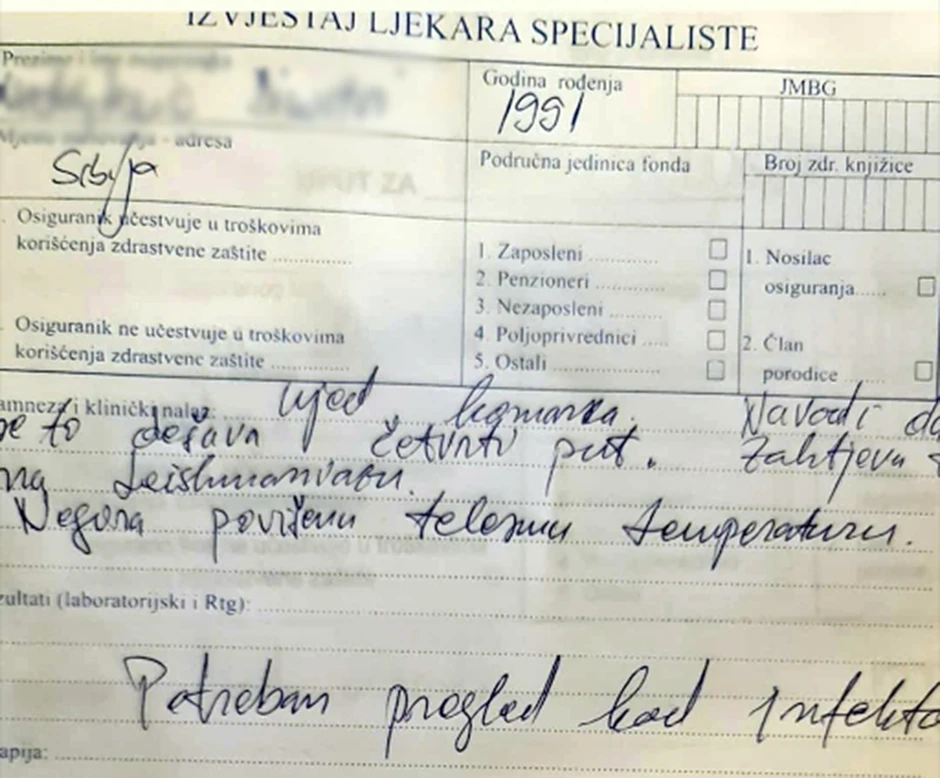 IZVJEŠTAJ LJEKARA SPECIJALISTE
Godina rođenja
JMBG
1991
- adresa
Srbija
Područna jedinica fonda
Broj zdr. knjižice
Osiguranik učestvuje u troškovima
korišćenja zdrastvene zaštite ..............
1. Zaposleni ..............
2. Penzioneri ..............
3. Nezaposleni ..............
4. Poljoprivrednici .....
5. Ostali ..............
1. Nosilac
osiguranja......
2. Član
porodice ........
Osiguranik ne učestvuje u troškovima
korišćenja zdrastvene zaštite ..............
amneza i klinički nalaz: ujed komarca. Navodi da
se to dešava četvrti put. Zahtjeva t
na Leishmaniazu.
Negira povišenu telesnu temperaturu.
zultati (laboratorijski i Rtg):
Potreban pregled kod Infekto
apija: